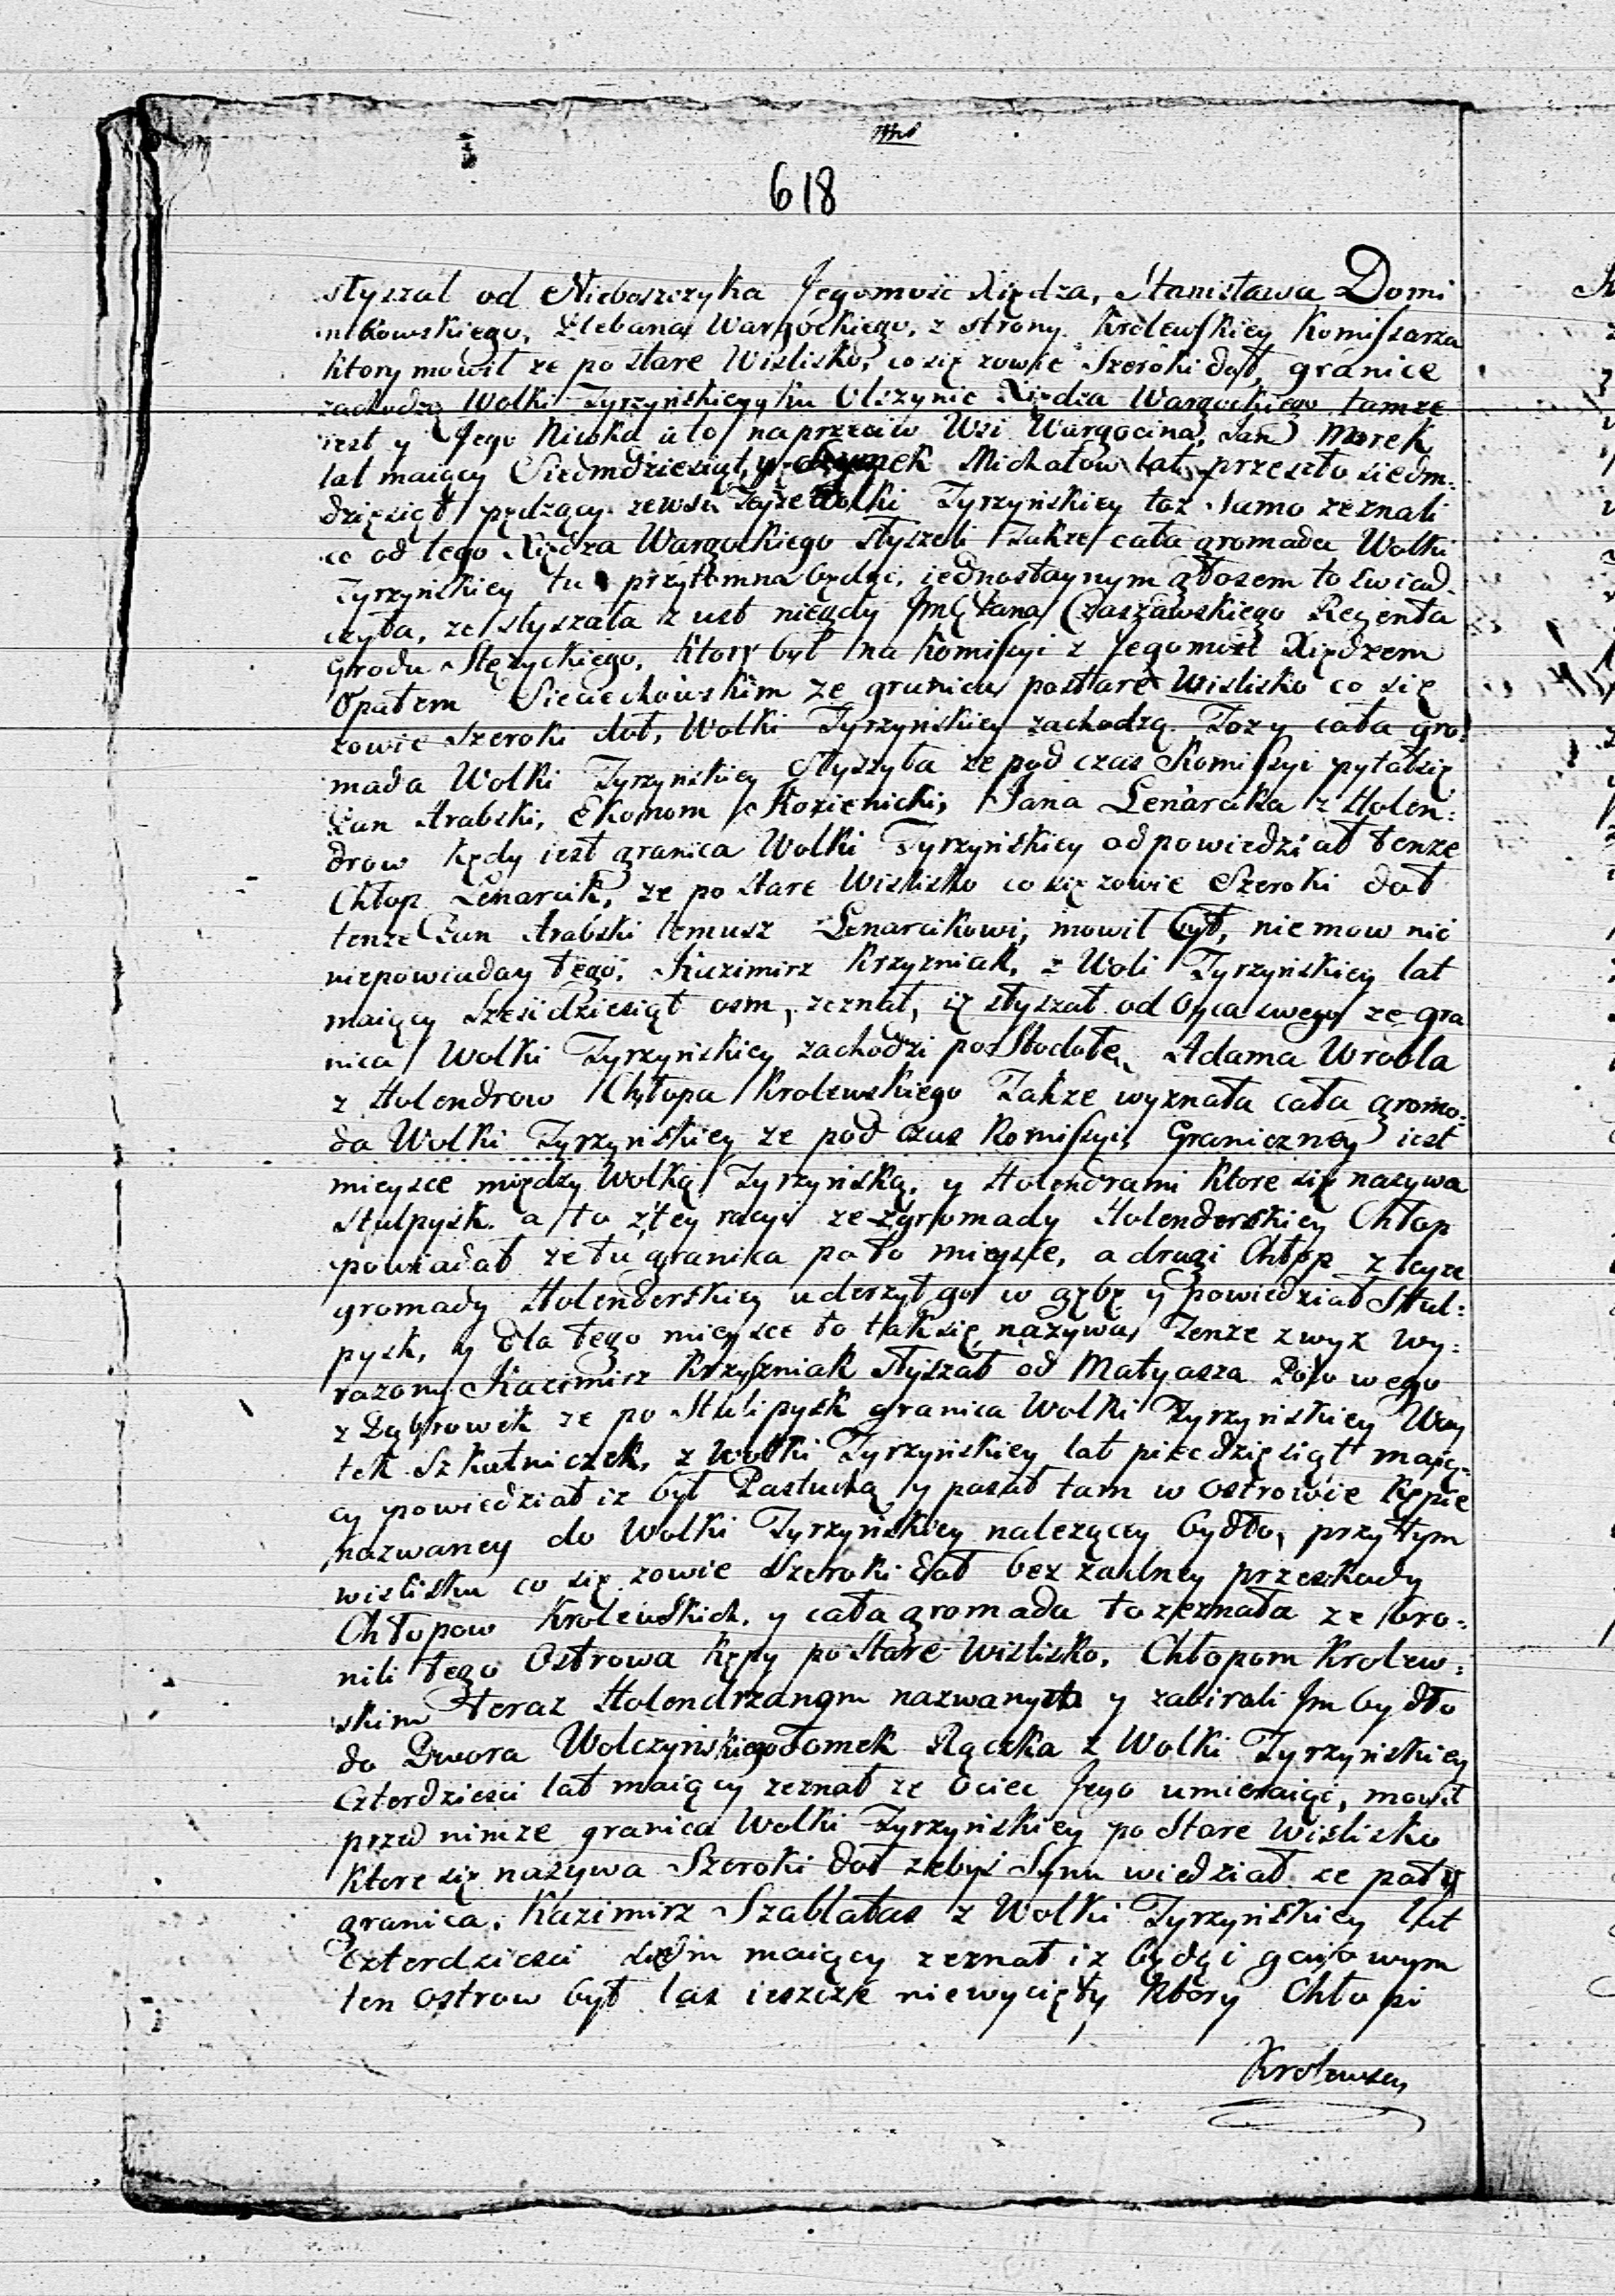 618
słyszał od Nieboszczyka Jegomość Xiędza, Stanisława Domi
nikowskiego, Plebana Wargockiego, z strony Krolewskiey Komissarza
ktory mowił ze po stare Wislisko, co się zowie Szeroki doł, granice
zachodzą Wolki Tyrzyńskiey ku Olszynie Xiędza Wargockiego tamze
iest y Jego Niwka a to naprzeciw Wsi Wargocina, Jan Marek
lat maiący Siedmdziesiąt, y Szymek Michałow lat przeszło siedm:
dziesiąt pędzący zewsi Teyze Wolki Tyrzyńskiey toz samo zeznali
co od tego Xiędza Wargockiego słyszeli Takze cała gromada Wolki
Tyrzyńskiey tu przytomna będąc, iednostaynym głosem to swiad
czyła, ze słyszała z ust niegdy Jmć Pana Czaszawskiego Regenta
Grodu Stężyckiego, ktory był na Komissyi z Jegomość Xiędzem
Opatem Sieciechowskim ze granica po stare Wislisko co się
zowie Szeroki doł, Wolki Tyrzyńskiey zachodzą. Toz y cała gro:
mada Wolki Tyrzyńskiey słyszyła ze pod czas Komissyi pytał się
Pan Arabski, Ekonom Kozienicki, Jana Lenarcika z Holen:
drow kędy iest granica Wolki Tyrzyńskiey odpowiedział tenze
Chłop Lenarcik, ze po stare Wislisko co się zowie Szeroki doł
tenze Pan Arabski temusz Lenarcikowi, mowił był, nie mow nic
niepowiaday tego. Kazimirz Krzyzniak, z Woli Tyrzyńskiey lat
maiący Sześćdziesiąt osm, zeznał, iz słyszał od Oyca swego ze gra
nica Wolki Tyrzyńskiey zachodzi po Stodołe Adama Wrobla
z Holendrow Chłopa Krolewskiego Takze wyznała cała groma:
da Wolki Tyrzyńskiey ze pod czas Komissyi Graniczney iest
mieysce między Wolką Tyrzyńską, y Holendrami ktore się nazywa
Stulpysk. a to z tey racyi ze z gromady Holenderskiey Chłop
powiadał ze tu granica po to mieysce, a drugi Chłop z teyze
gromady Holenderskiey uderzył go w gębę y powiedział Stul:
pysk, y dla tego mieysce to tak się nazywa, Tenze zwyz wy:
razony Kazimirz Krzyzniak słyszał od Matyasza Polowego
z Dąbrowek ze po Stulipysk granica Wolki Tyrzyńskiey Woy
tek Szkutniczek, z Wolki Tyrzyńskiey lat piecdziesiąt maią:
cy powiedział iz był Pastuchą y pasał tam w ostrowie Kępie
nazwaney do Wolki Tyrzyńskiey nalezącey bydło, przy tym
wislisku co się zowie Szeroki doł bez zadney przeszkody
Chłopow Krolewskich, y cała gromada to zeznała ze bro:
nili tego Ostrowa Kępy po stare Wislisko, Chłopom Krolew:
skim teraz Holendrzanom nazwanych y zabirali Jm bydło
do Dwora Wolczyńskiego Tomek Rączka z Wolki Tyrzyńskiey
Czterdziesci lat maiący zeznał ze Ociec Jego umieraiąc, mowił
przed nim ze granica Wolki Tyrzyńskiey po Stare Wislisko
ktore się nazywa Szeroki doł zebyś Synu wiedział ze poty
granica. Kazimirz Szablatas z Wolki Tyrzyńskiey lat
Czterdziesci maiący zeznał iz będąc gaiowym
ten ostrow był las ieszcze niewycięty ktory Chłopi
Krolewscy